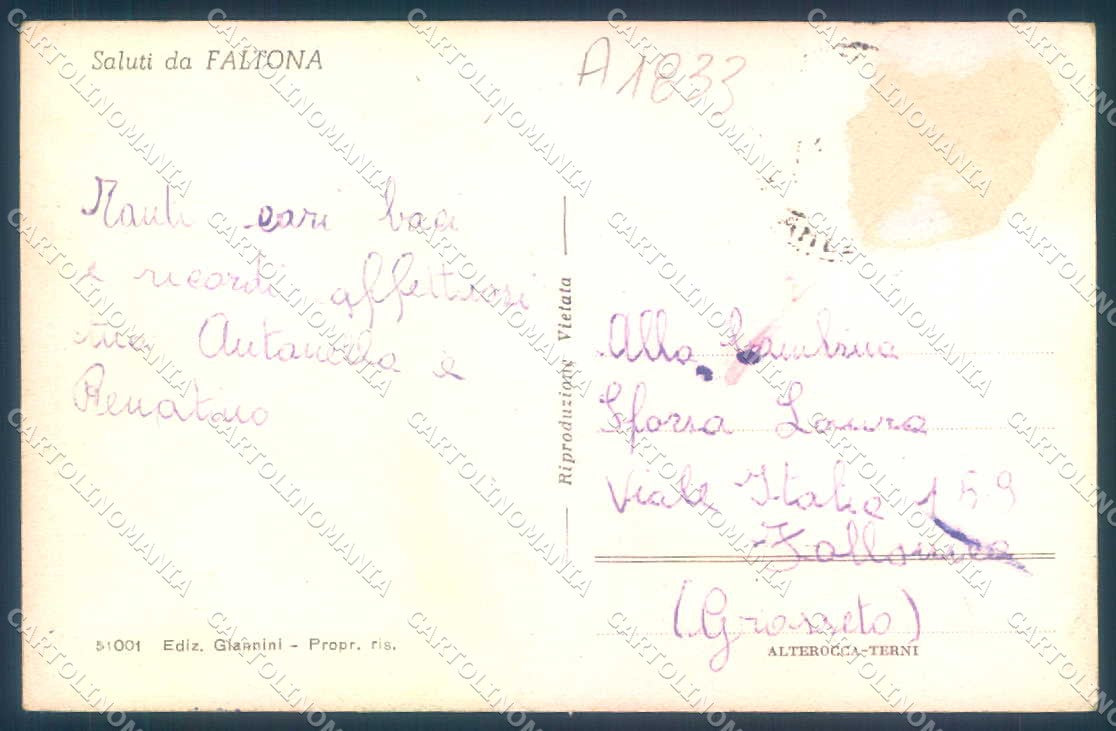 Saluti da FALTONA
A1833
Tanti cari baci
e ricordi affettuosi
Antonella e
Renatino
Riproduzione Vietata
Alla Bambina
Sforza Laura
Viale Italia 159
Follonica
(Grosseto)
51001 Ediz. Giannini - Propr. ris.
ALTEROCCA-TERNI
CARTOLINOMANIA